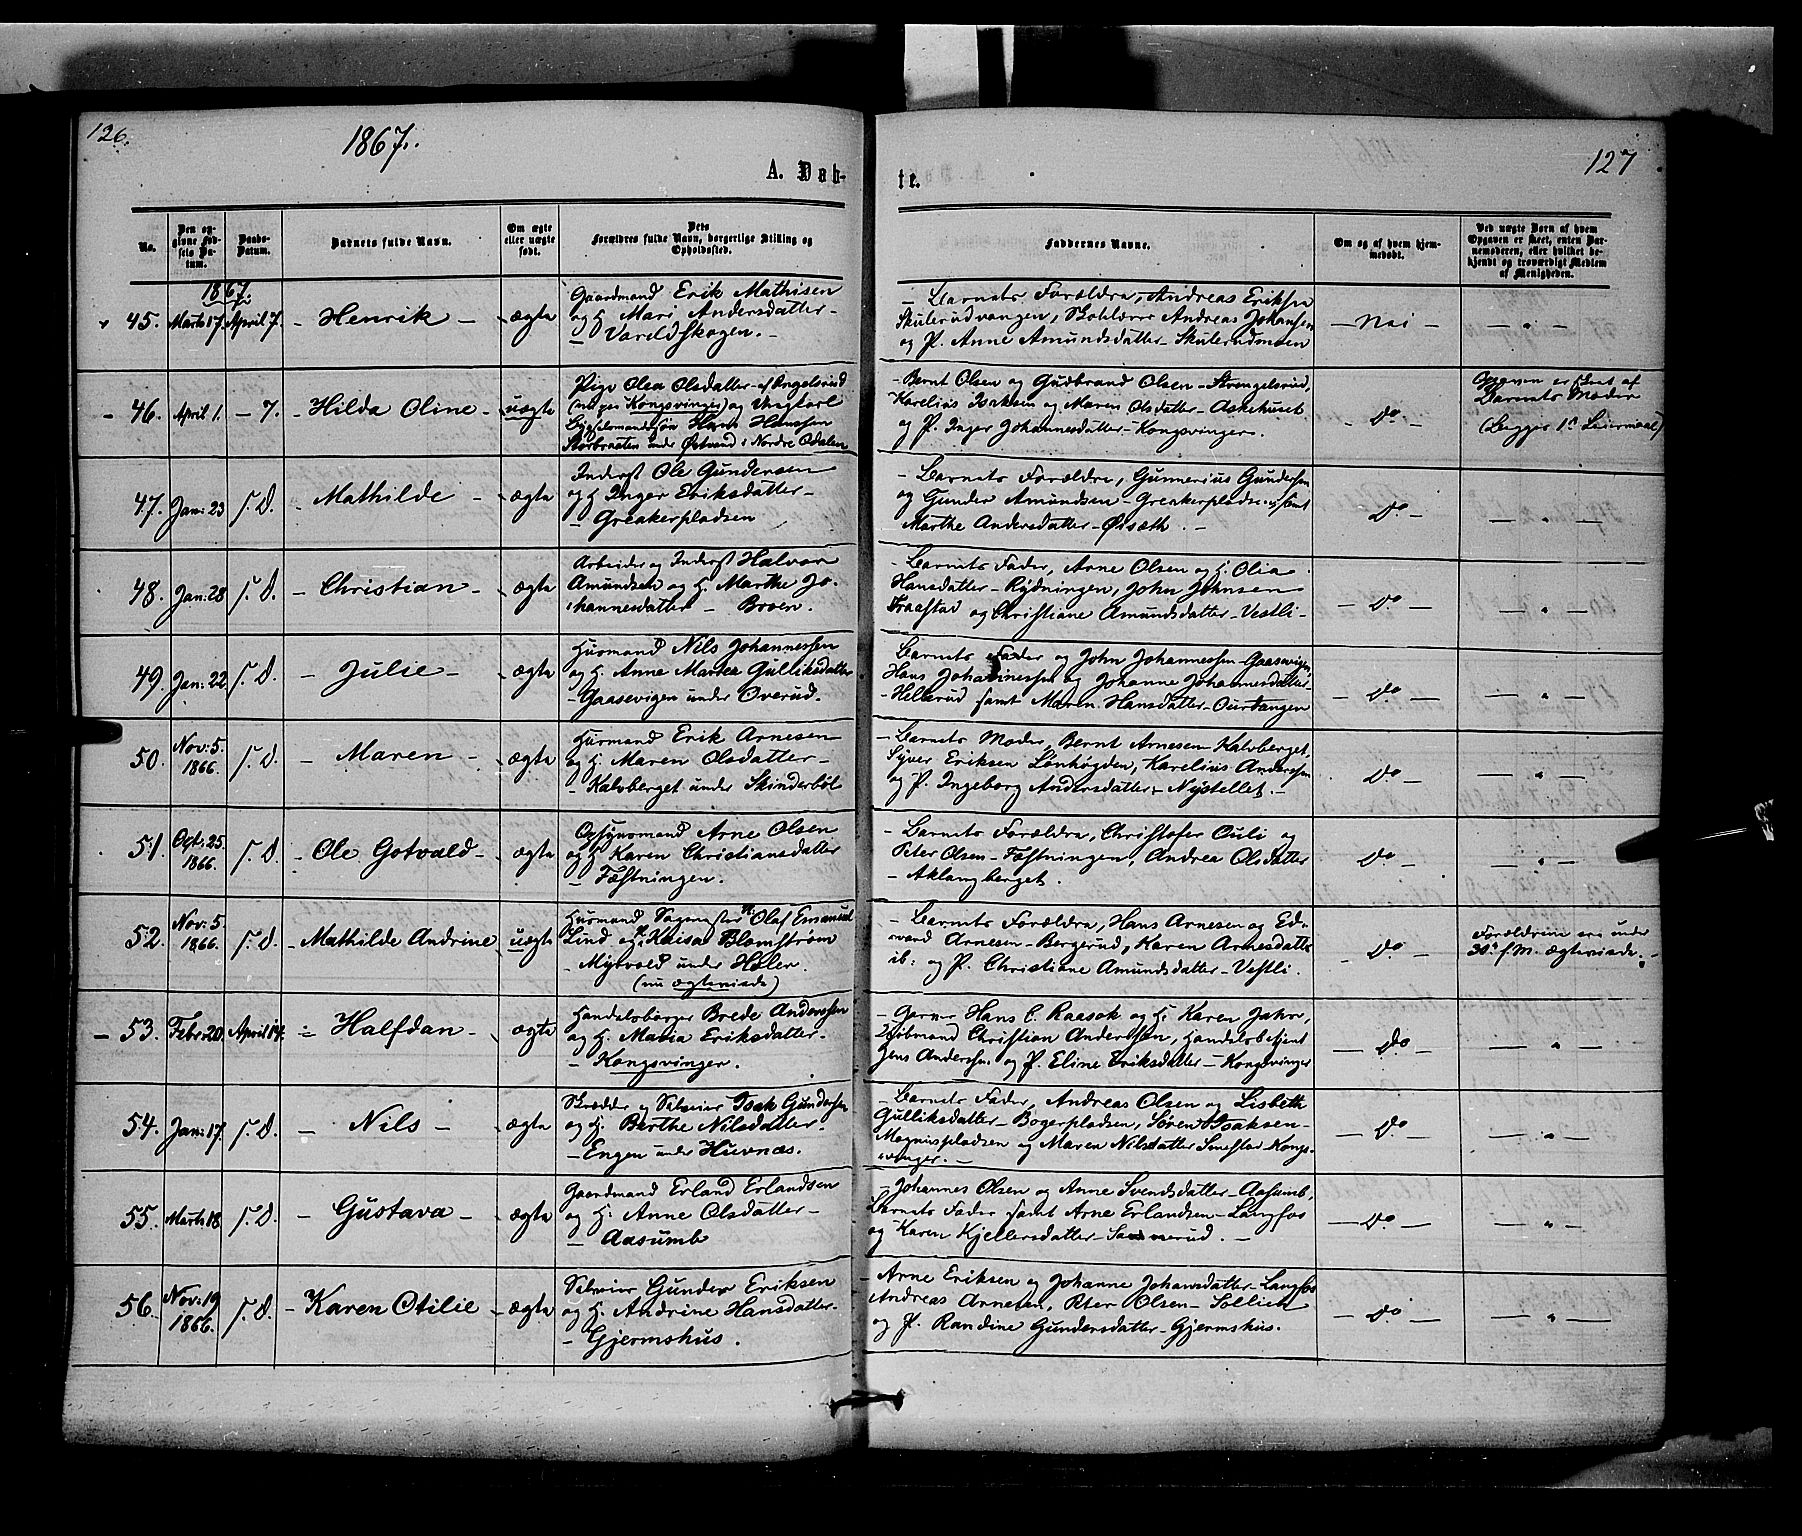 126.
1867.
A. Døb-
No.
Den opgivne Fødsels Datum.
Daabs-Datum.
Barnets fulde Navn.
Om ægte eller uægte født.
Dets Forældres fulde Navn, borgerlige Stilling og Opholdssted.
1867.
45. Marts 17. April 7. - Henrik - ægte
Gaardmand Erik Mathisen
og H. Mari Andersdatter -
- Varaldskogen. -
- 46. April 1. - 7. - Hilda Oline - uægte
Pige Olea Olsdatter - af
(nu paa Kongsvinger) og Ungkarl
Hans Hansen
Storbraaten under Østvand i Nordre Odalen
47. Jan: 23 s. D. - Mathilde - ægte
Inderst Ole Gundersen
og H. Inger Eriksdatter -
- Greakerpladsen
48. Jan: 28 s. D. - Christian - ægte
Arbeider og Inderst Halvor
Amundsen og H. Marthe Jo-
hannesdatter - Broen.
49. Jan: 22 s. D. - Julie - ægte
Husmand Nils Johannessen
og H. Anne Martea Gulliksdatter
- Gaasevigen under Overud. -
50. Nov: 5. 1866. s. D. - Maren - ægte
Husmand Erik Arnesen
og H. Maren Olsdatter -
- Kalvberget under Skinderböl
51. Oct. 25. 1866. s. D. - Ole Gotvald - ægte
Opsynsmand Arne Olsen
og H. Karen Christiansdatter
- Fæstningen.
52. Nov: 5. 1866. s. D. - Mathilde Andrine uægte
Husmand Sagmester Olaf Emanuel
Lind og Kaisa Blomstrøm
- Myrvold under Holer.
(nu ægteviede)
- 53. Febr 20. April 14. = Halfdan - ægte
Handelsborger Brede Anderssen
og H. Maria Eriksdatter -
- Kongsvinger.
54. Jan: 17. s. D. - Nils - ægte
Skrædder og Selveier Isak Gundersen
og H. Berthe Nilsdatter -
- Engen under Huvnæs.
55. Marts 18 s. D. - Gustava - ægte
Gaardmand Erland Erlandsen
og H. Anne Olsdatter -
- Aasumb
56. Nov: 19 1866. s. D. - Karen Otilie - ægte
Selveier Gunder Eriksen
og H. Andrine Hansdatter -
- Gjermshus.
127
te.
Faddernes Navne.
Om og af hvem hjemmedøbt.
Ved uægte Børn af hvem Opgaven er skeet, enten Barnemoderen, eller hvilket bekjendt og troværdigt Medlem af Menigheden.
- Barnets Forældre, Andreas Eriksen
Skulerudvangen, Skolelærer Andreas Johansen
og P. Anne Amundsdatter - Skulerudmoen
- Nei - - " -
- Bernt Olsen og Gudbrand Olsen - Strengelsrud,
Karelius Isaksen og Maren Olsdatter - Askehuset
og P. Inger Johannesdatter - Kongsvinger.
- Do - Opgaven er skeet af
Barnets Moder
(Begges 1ste Leiermaal)
- Barnets Forældre, Gunnerius Gundersen
og Gunder Amundsen - Greakerpladsen, samt
Marthe Andersdatter - Ørsæth. -
Do - - " -
- Barnets Fader, Arne Olsen og H. Olia
Hansdatter - Rydningen, John Johnsen
Fraastad og Christiane Amundsdatter - Vestli -
- Do - - " -
- Barnets Fader og John Johannessen - Gaasevigen,
Hans Johannessen og Johanne Johannesdatter -
- Hellerud samt Maren Hansdatter - Ourtangen
- Do - - " -
- Barnets Moder, Bernt Arnesen - Kalvberget,
Syver Eriksen Lönhögden, Karelius Anderssen
og P. Ingeborg Andersdatter - Nystellet. -
Do - - " -
- Barnets Forældre, Christofer Ouli og
Peter Olsen - Fæstningen, Andrea Olsdatter
- Aklangberget.
Do - - " -
- Barnets Forældre, Hans Arnesen og Ed-
vard Arnesen - Bergerud, Karen Arnesdatter
ib: og P. Christiane Amundsdatter - Vestli.
- Do - Forældrene ere under
30te f. M. ægteviede. -
- Garver Hans C. Raasok og H. Karen Jahr,
Kjøbmand Christian Anderssen, Handelsbetjent
Jens Anderssen og P. Eline Eriksdatter - Kongsvinger
- Do - - " -
- Barnets Fader, Andreas Olsen og Lisbeth
Gulliksdatter - Bogerpladsen, Sören Isaksen -
- Magnispladsen og Maren Nilsdatter Smestad - Kongs-
vinger. -
- Do - - " -
- Johannes Olsen og Anne Svendsdatter - Aasumb,
Barnets Fader samt Arne Erlandsen - Langfos
og Karen Kjellersdatter - Sannerud. -
- Do - - " -
- Arne Eriksen og Johanne Johansdatter - Langfos
Andreas Arnesen, Peter Olsen - Sollien
og P. Randine Gundersdatter - Gjermshus.
- Do - - " -